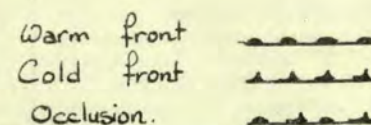 Warm front
Cold front
Occlusion.